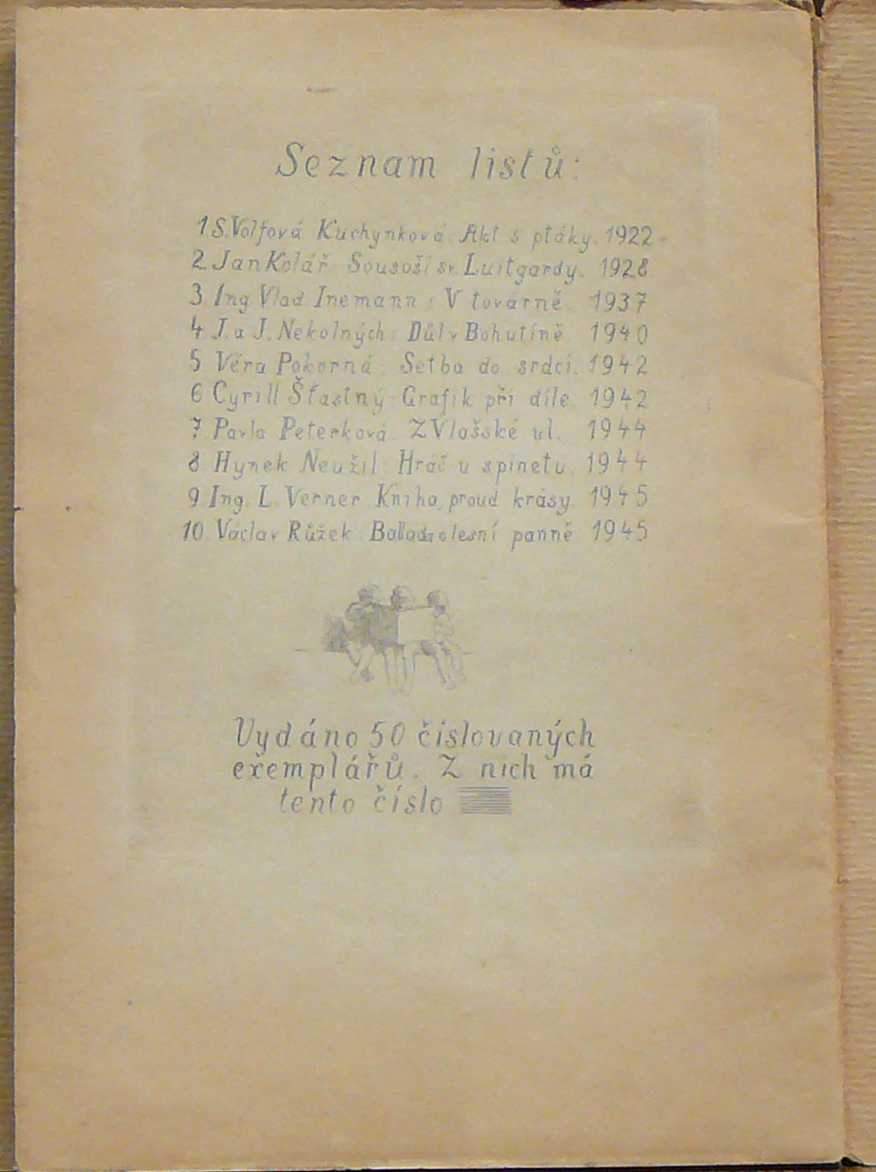 Seznam listů:
1 S. Volfová Kuchynková: Akt s ptáky. 1922
2 Jan Kolář: Sousoší sv. Luitgardy. 1928
3 Ing Vlad Inemann: V továrně. 1937
4 J. a J. Nekolných: Důl v Bohutíně 1940
5 Věra Pokorná: Setba do srdcí. 1942
6 Cyrill Šťastný: Grafik při díle. 1942
7 Pavla Peterková: Z Vlašské ul. 1944
8 Hynek Neužil: Hráč u spinetu. 1944
9 Ing. L. Verner Kniha, proud krásy. 1945
10 Václav Růžek: Ballada o lesní panně 1945
Vydáno 50 číslovaných
exemplářů. Z nich má
tento číslo